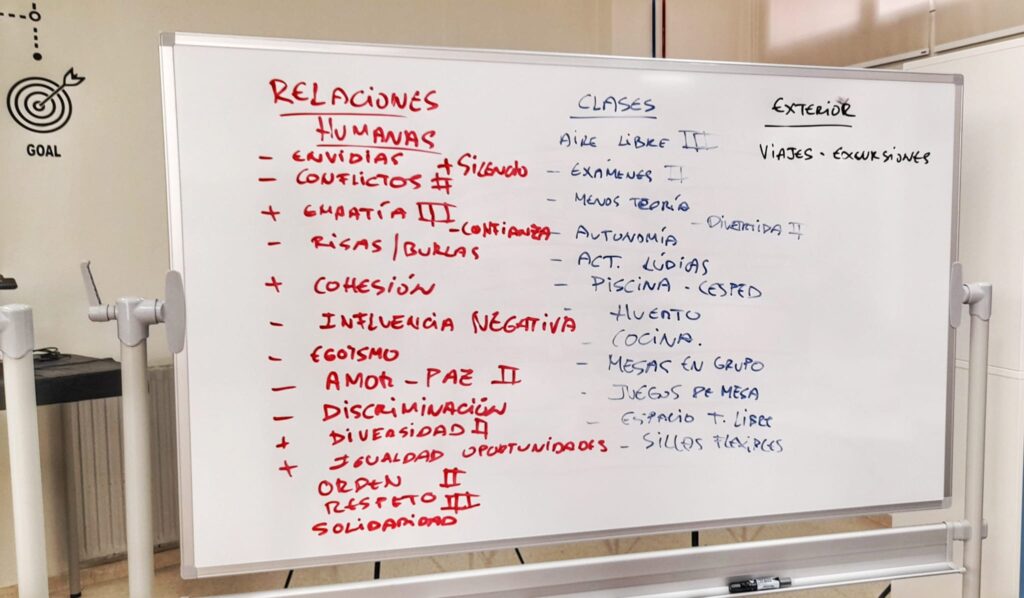 GOAL
RELACIONES
HUMANAS
- ENVIDIAS + SILENCIO
- CONFLICTOS II
+ EMPATÍA III
- CONFIANZA
- RISAS/BURLAS
+ COHESIÓN
- INFLUENCIA NEGATIVA
- EGOÍSMO
- AMOR - PAZ II
- DISCRIMINACIÓN
+ DIVERSIDAD II
+ IGUALDAD OPORTUNIDADES
ORDEN II
RESPETO III
SOLIDARIDAD
CLASES
AIRE LIBRE III
- EXÁMENES II
- MENOS TEORÍA
- DIVERTIDA II
- AUTONOMÍA
- ACT. LÚDIAS
- PISCINA - CESPED
HUERTO
- COCINA.
- MESAS EN GRUPO
- JUEGOS DE MESA
- ESPACIO T. LIBRE
- SILLAS FLEXIBLES
EXTERIOR
VIAJES - EXCURSIONES